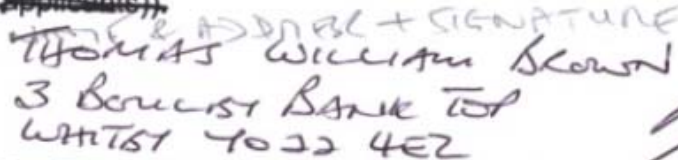 applicant(s)).
& ADDRESS + SIGNATURE
THOMAS WILLIAM BROWN
3 BOULBY BANK TOP
WHITBY YO22 4EZ